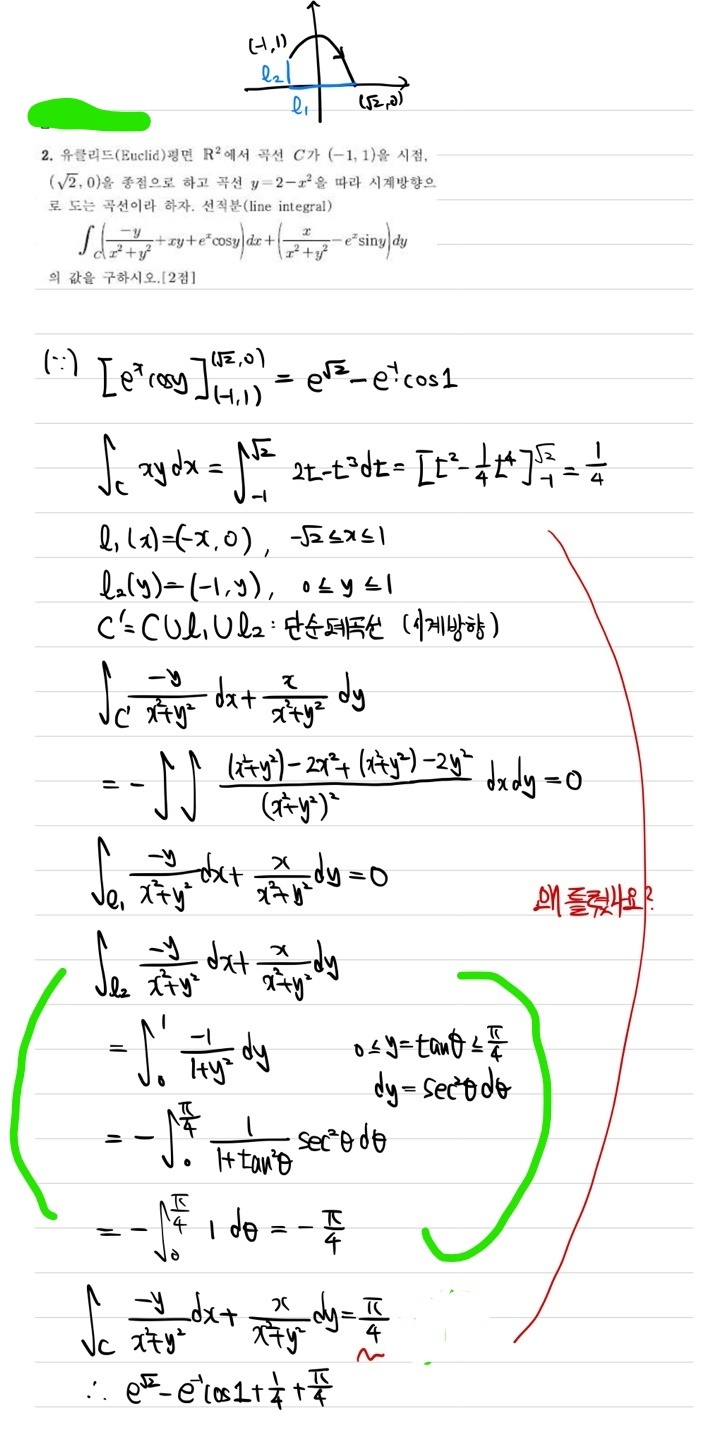 (-1,1)
ℓ₂
ℓ₁
(√2,0)
2. 유클리드(Euclid)평면 R²에서 곡선 C가 (-1, 1)을 시점,
(√2, 0)을 종점으로 하고 곡선 y=2-x²을 따라 시계방향으
로 도는 곡선이라 하자. 선적분(line integral)
∫_C(-y/(x²+y²)+xy+eˣcosy)dx+(x/(x²+y²)-eˣsiny)dy
의 값을 구하시오.[2점]
(∵) [eˣcosy]_(-1,1)^(√2,0) = e^√2 - e⁻¹·cos1
∫_C xy dx = ∫_-1^√2 2t-t³dt = [t²-1/4 t⁴]_-1^√2 = 1/4
ℓ₁(x)=(-x, 0), -√2≤x≤1
ℓ₂(y)=(-1,y), 0≤y≤1
C'=C∪ℓ₁∪ℓ₂ : 단순폐곡선 (시계방향)
∫_C' -y/(x²+y²) dx + x/(x²+y²) dy
= -∫∫ ((x²+y²)-2x²+(x²+y²)-2y²)/(x²+y²)² dxdy = 0
∫_ℓ₁ -y/(x²+y²) dx + x/(x²+y²) dy = 0
왜 틀렸나요?
∫_ℓ₂ -y/(x²+y²) dx + x/(x²+y²) dy
= ∫_0^1 -1/(1+y²) dy 0≤y=tanθ≤π/4
dy=sec²θdθ
= -∫_0^(π/4) 1/(1+tan²θ) sec²θdθ
= -∫_0^(π/4) 1 dθ = -π/4
∫_C -y/(x²+y²) dx + x/(x²+y²) dy = π/4
∴ e^√2 - e⁻¹cos1 + 1/4 + π/4